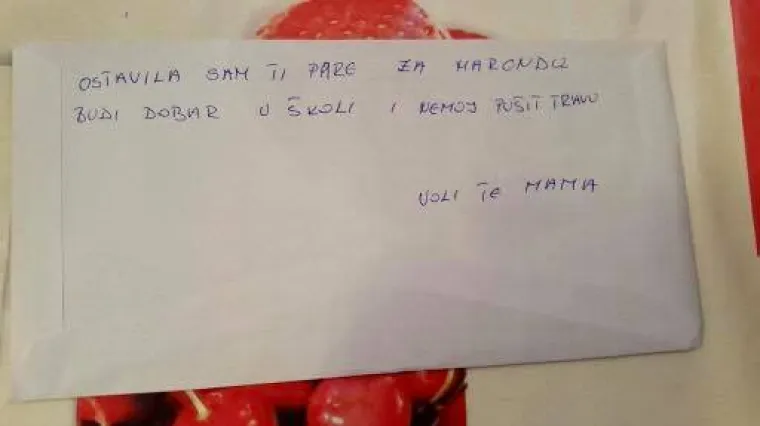 OSTAVILA SAM TI PARE ZA MARENDU
BUDI DOBAR U ŠKOLI I NEMOJ PUŠIT TRAVU
VOLI TE MAMA